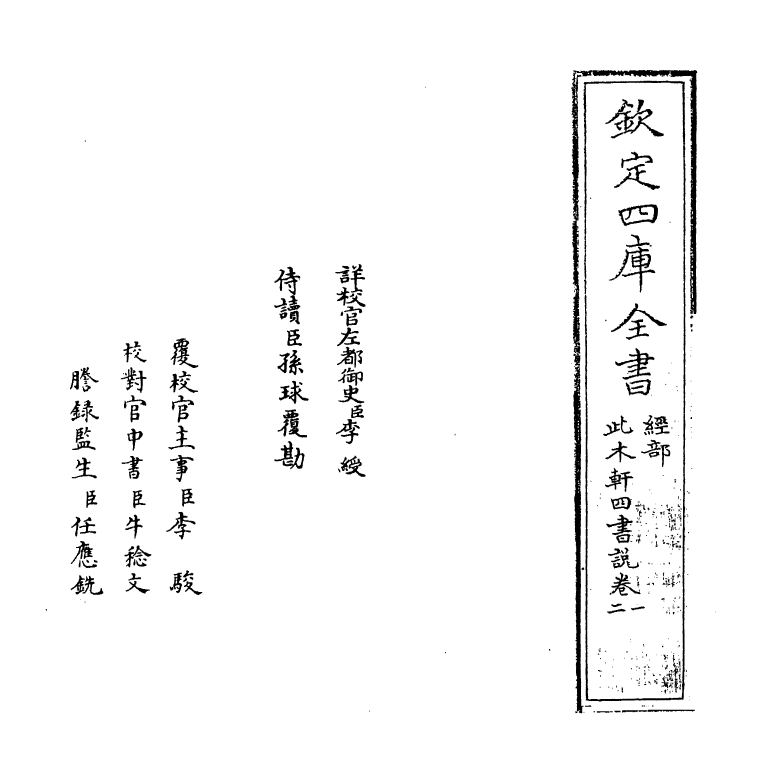 欽定四庫全書
經部
此木軒四書說卷一二
詳校官左都御史臣李綬
侍讀臣孫球覆勘
覆校官主事臣李駿
校對官中書臣牛稔文
謄錄監生臣任應銑